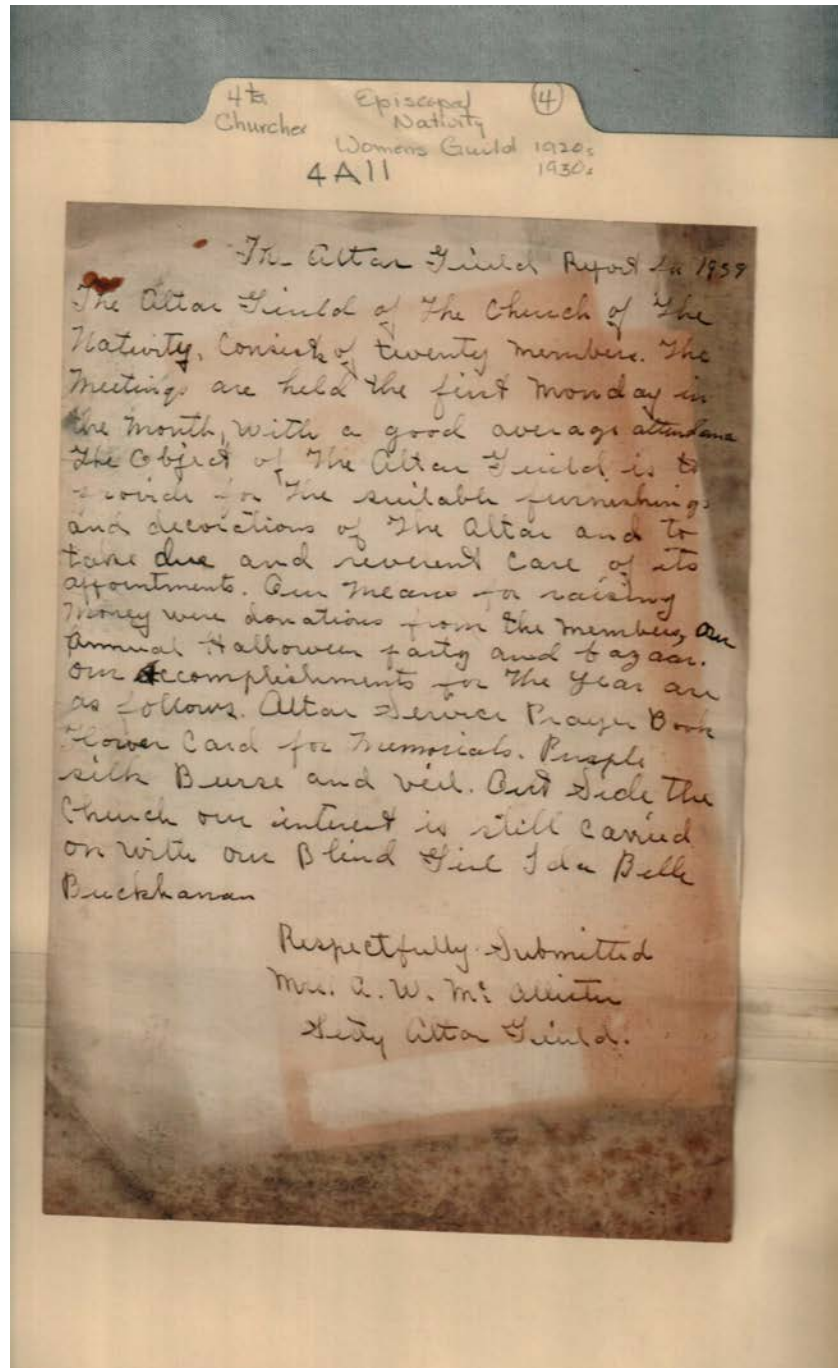 4th Episcopal ④
Churches Nativity
Womens Guild 1920s
4A11 1930s
The Altar Guild Report in 1939
The Altar Guild of The Church of The
Nativity, Consists of twenty Members. The
Meetings are held the first Monday in
the Month, With a good average attendance
The Object of The Altar Guild is to
provide for The suitable furnishings
and decorations of The Altar and to
take due and reverent Care of its
appointments. Our Means for raising
Money were donations from the Members, an
Annual Halloween party and bazaar.
Our Accomplishments for The Year are
as follows. Altar Service Prayer Book
Flower Card for Memorials. Purple
silk Burse and veil. Out Side the
Church our interest is still Carried
on with our Blind Girl Ida Belle
Buckhanan
Respectfully Submitted
Mrs. A. W. Mc Allister
Setty Altar Guild.